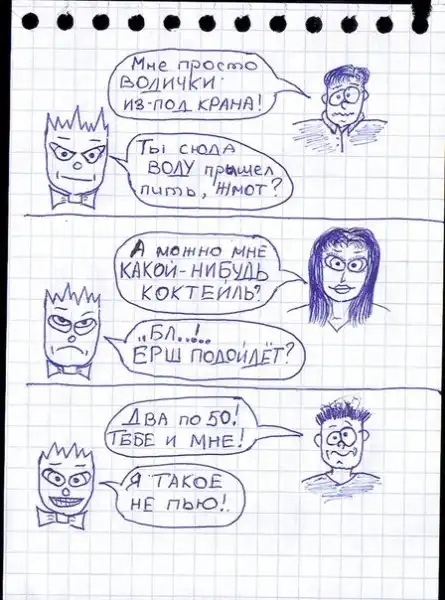 Мне просто
ВОДИЧКИ
ИЗ-ПОД КРАНА!
Ты сюда
ВОДУ пришел
пить, жмот?
А МОЖНО МНЕ
КАКОЙ-НИБУДЬ
КОКТЕЙЛЬ?
„БЛ.....!
ЁРШ ПОДОЙДЁТ?
ДВА ПО 50!
ТЕБЕ И МНЕ!
Я ТАКОЕ
НЕ ПЬЮ!